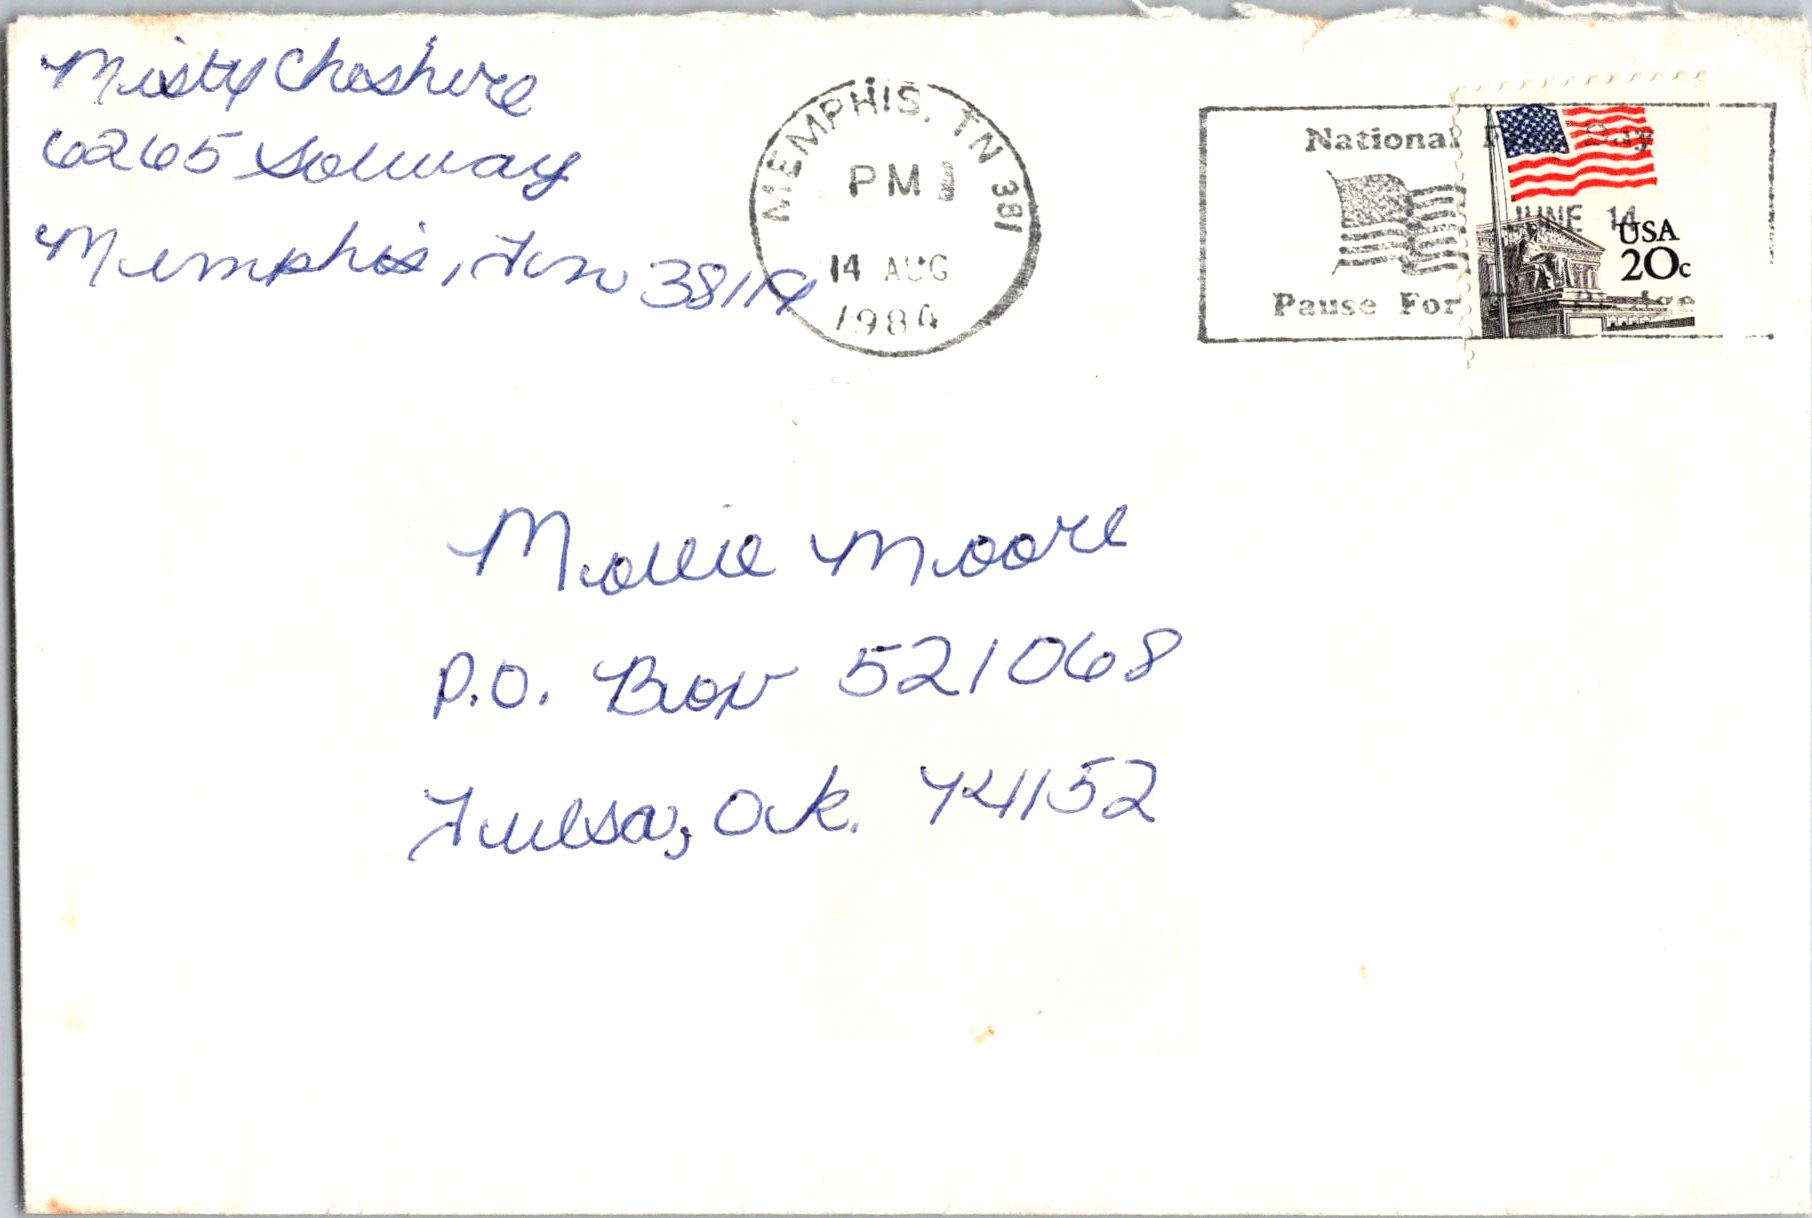 Misty Cheshire
6265 Solway
Memphis, Tn 38119
MEMPHIS, TN 381
PM
14 AUG
1984
National Flag Day
JUNE 14
USA
20c
Pause For The Pledge
Mollie Moore
P.O. Box 521068
Tulsa, Ok. 74152